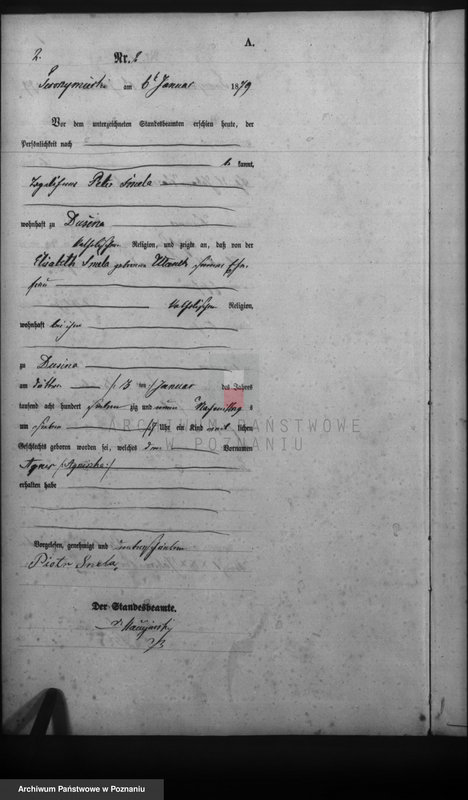 A.
2.
Nr. 2
am 6t Januar 1879
Vor dem unterzeichneten Standesbeamten erschien heute, der
Persönlichkeit nach
be kannt,
Peter Smela
wohnhaft zu Dusina
katholischer Religion, und zeigte an, daß von der
Elisabeth Smela geborene seiner Ehe
frau
katholischer Religion,
wohnhaft bei ihm
zu Dusina
am dritten /: 3 ten :/ Januar des Jahres
tausend acht hundert sieben zig und neun Nachmittag s
um sieben /7 Uhr ein Kind weib lichen
Geschlechts geboren worden sei, welches den Vornamen
Agnes
erhalten habe
Vorgelesen, genehmigt und unterschrieben
Piotr Smela,
Der Standesbeamte.
ARCHIWUM PAŃSTWOWE
W POZNANIU
Archiwum Państwowe w Poznaniu